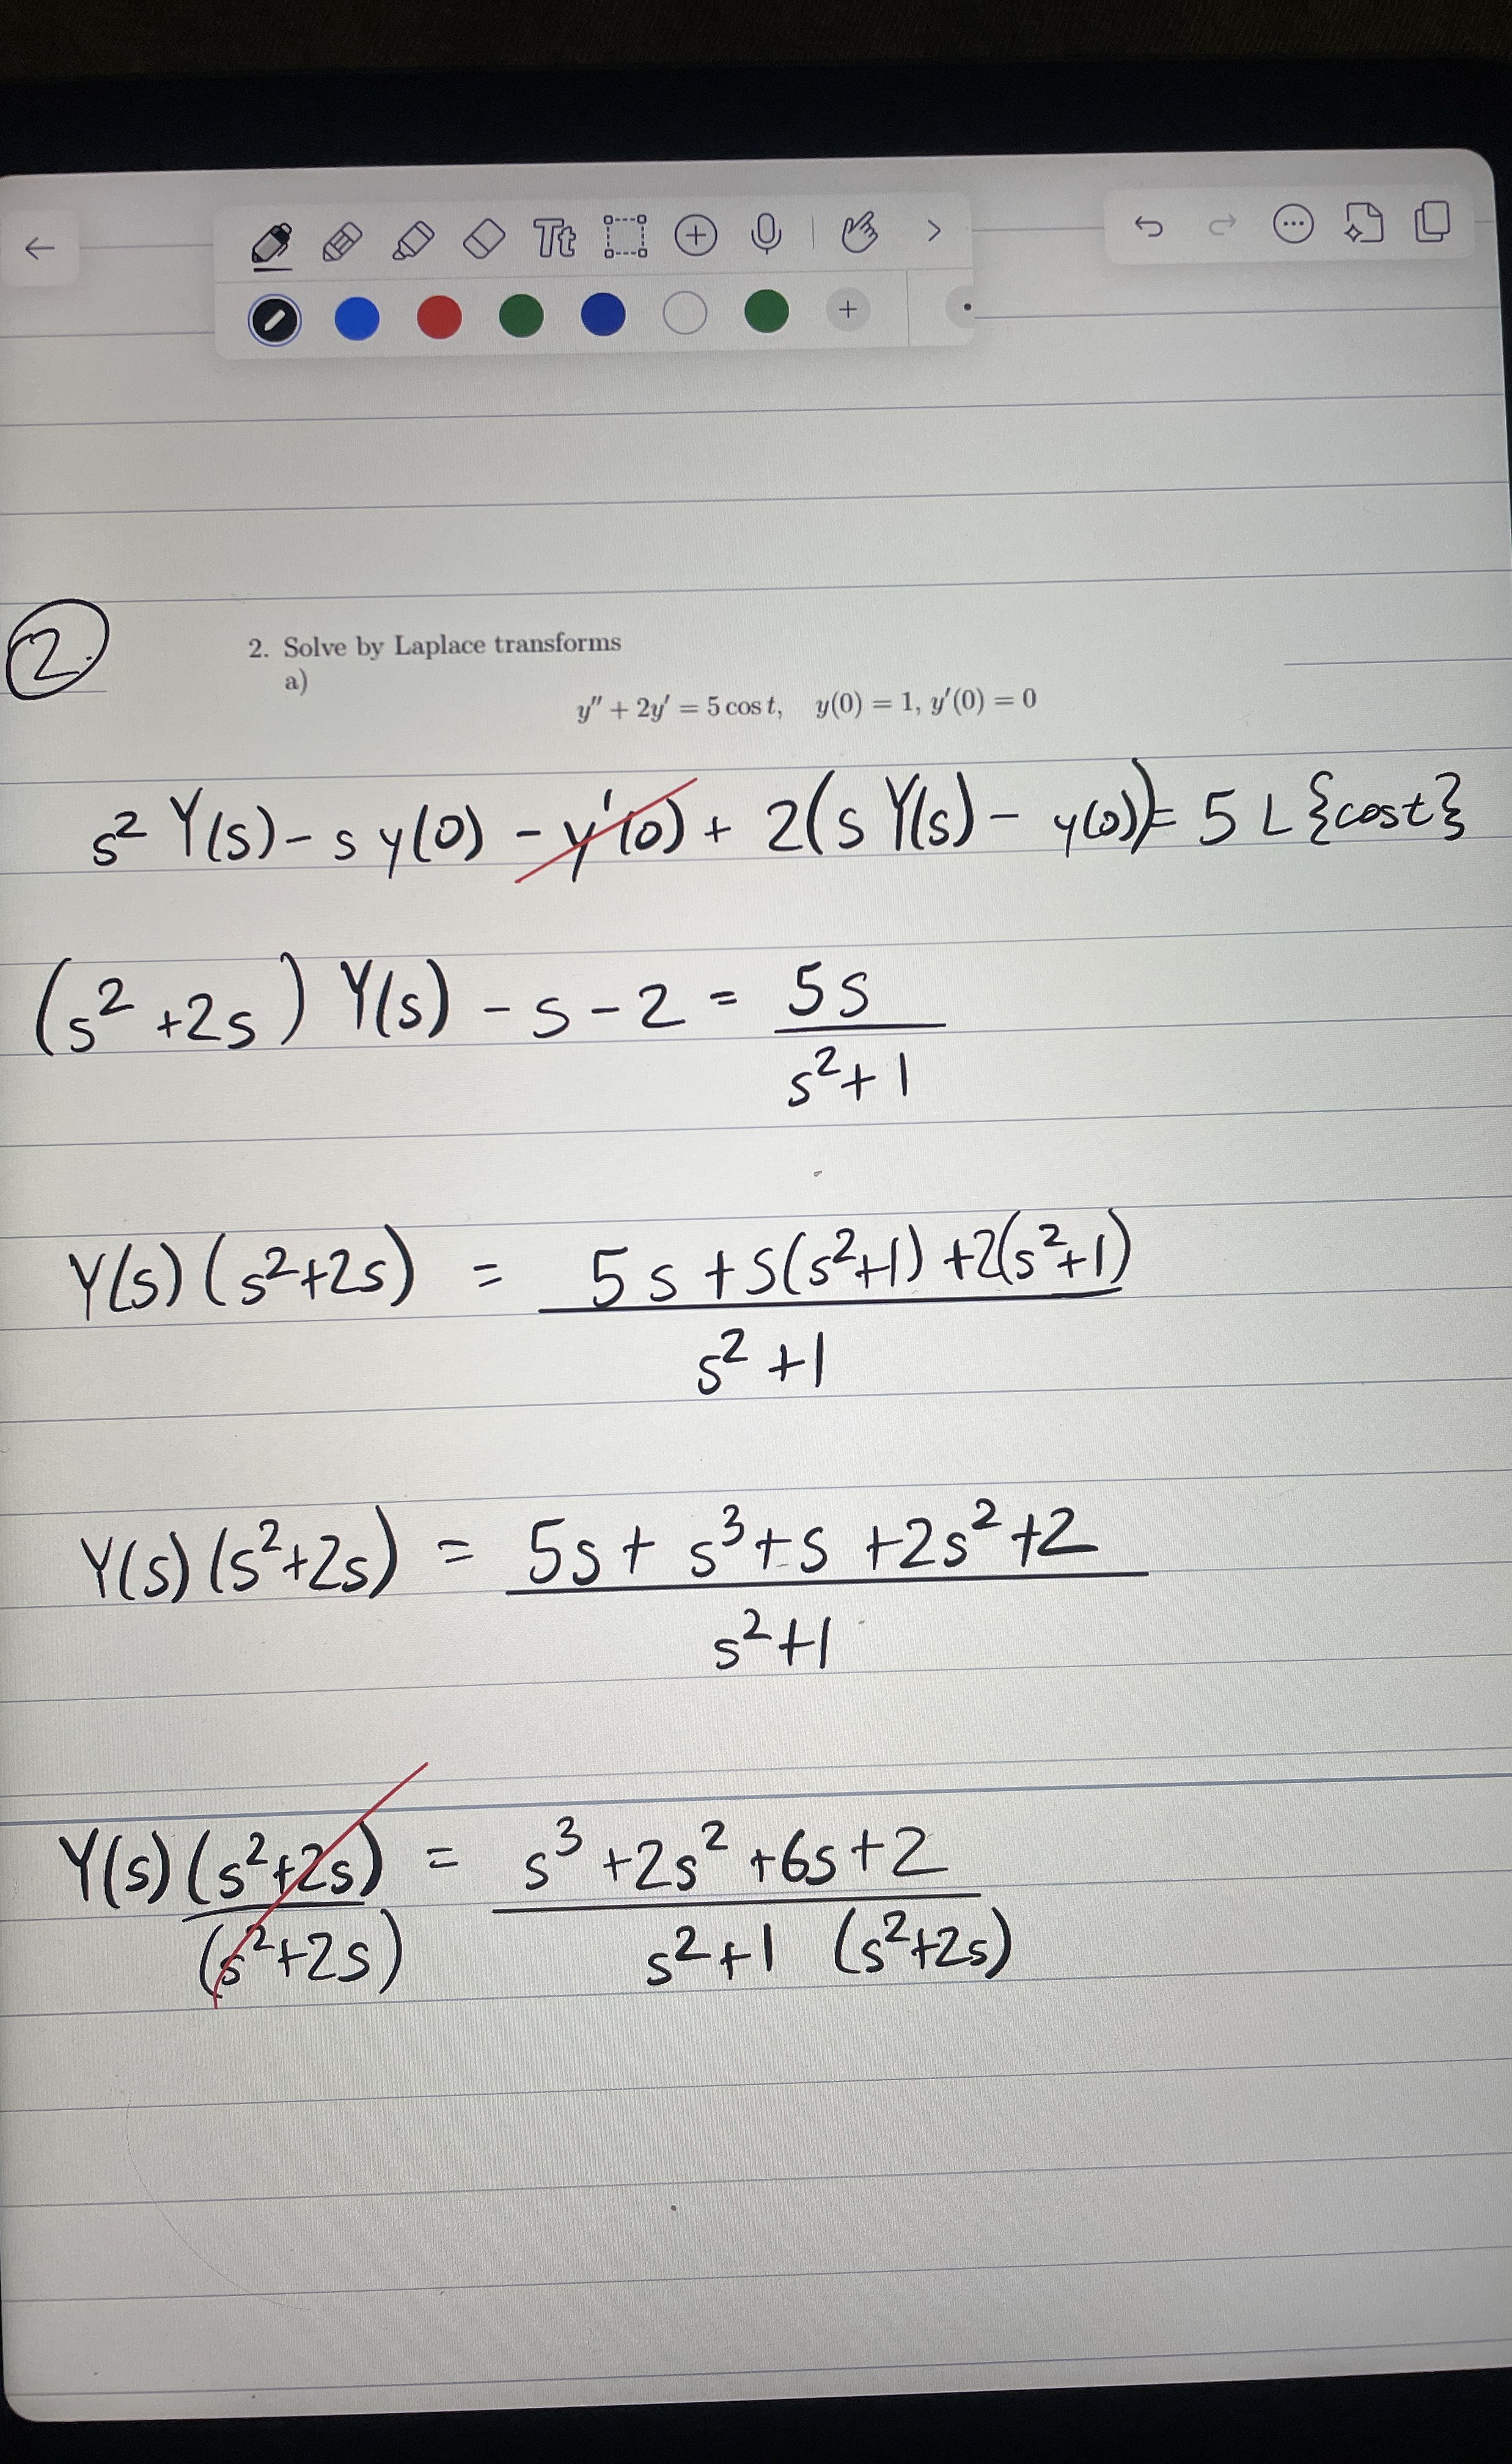 Tt
2.
2. Solve by Laplace transforms
a)
y″ + 2y′ = 5 cos t, y(0) = 1, y′(0) = 0
s² Y(s) - s y(0) - y'(0) + 2(s Y(s) - y(0)) = 5 L{cost}
(s² +2s) Y(s) - s - 2 = 5s / s²+1
Y(s) (s²+2s) = 5s + s(s²+1) +2(s²+1) / s²+1
Y(s) (s²+2s) = 5s + s³+s +2s²+2 / s²+1
Y(s) (s²+2s) / (s²+2s) = s³ +2s² +6s+2 / s²+1 (s²+2s)